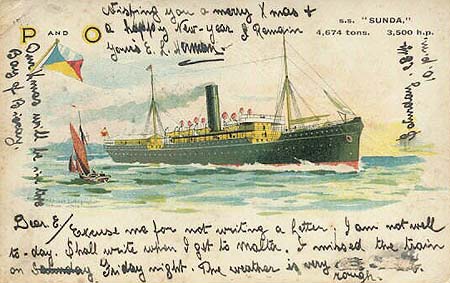 Wishing you a merry Xmas +
a happy New-year I Remain
Yours E. L. Herman.
P AND O
S.S. "SUNDA,"
4,674 tons. 3,500 h.p.
Our Xmas will be in the
Bay of Biscay.
Dear E/ Excuse me for not writing a letter, I am not well
to-day. Shall write when I get to Malta. I missed the train
on Friday night. The weather is very
rough.